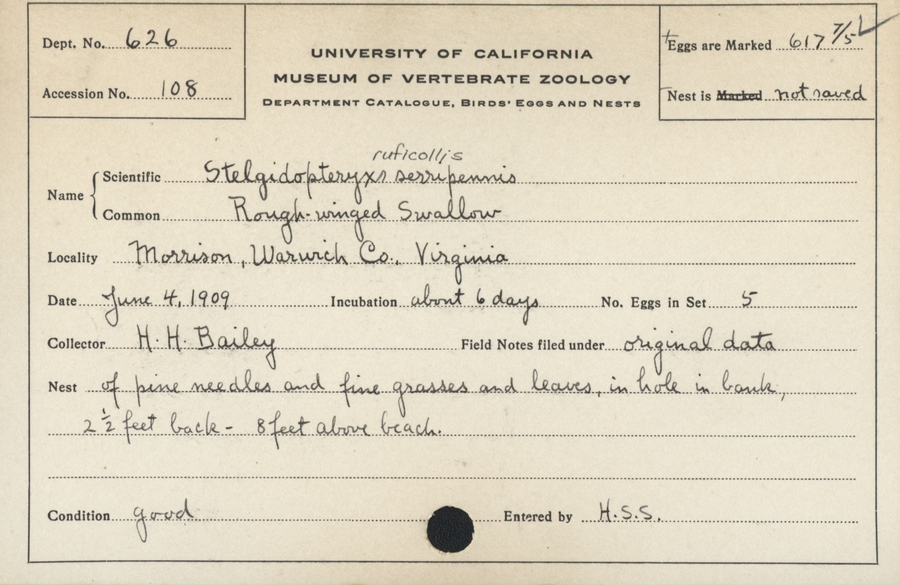 Dept. No. 626
Accession No. 108
UNIVERSITY OF CALIFORNIA
MUSEUM OF VERTEBRATE ZOOLOGY
DEPARTMENT CATALOGUE, BIRDS' EGGS AND NESTS
Eggs are Marked 617 7/5
Nest is Marked not saved
ruficollis
Name Scientific Stelgidopteryx serripennis
Common Rough-winged Swallow
Locality Morrison, Warwich Co., Virginia
Date June 4, 1909 Incubation about 6 days No. Eggs in Set 5
Collector H. H. Bailey Field Notes filed under original data
Nest of pine needles and fine grasses and leaves, in hole in bank,
2 1/2 feet back - 8 feet above beach.
Condition good Entered by H.S.S.